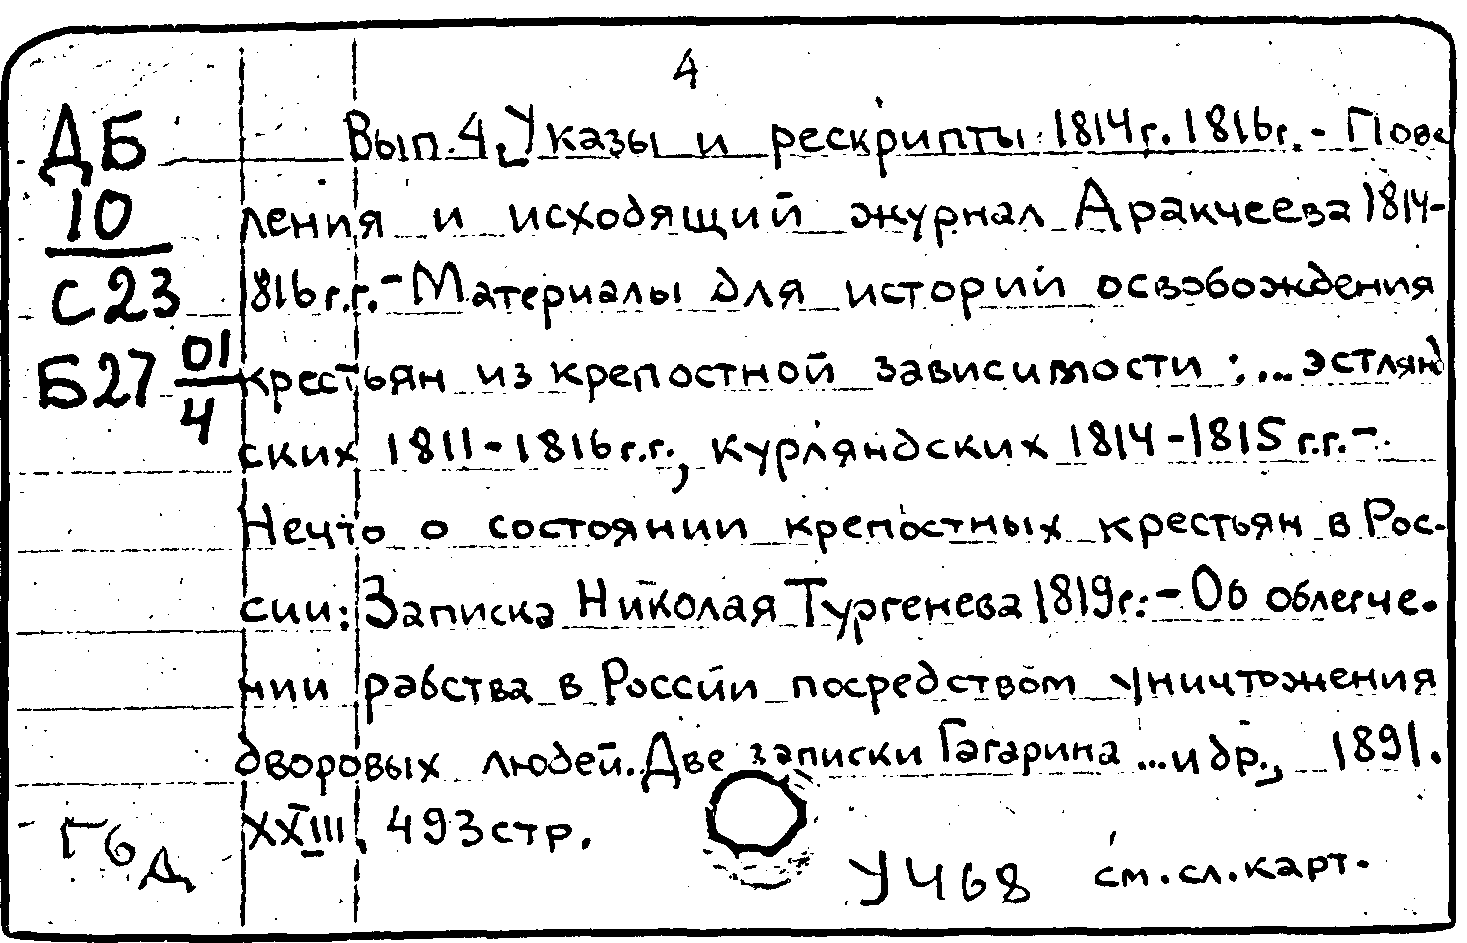 4
ДБ
10
С23
Б27 01/4
Вып. 4. Указы и рескрипты 1814г. 1816г. - Пове
ления и исходящий журнал Аракчеева 1814-
1816г.г. - Материалы для истории освобождения
крестьян из крепостной зависимости :... эстлянд
ских 1811-1816г.г., курляндских 1814-1815 г.г. -
Нечто о состоянии крепостных крестьян в Рос-
сии: Записка Николая Тургенева 1819г. - Об облегче-
нии рабства в России посредством уничтожения
дворовых людей. Две записки Гагарина ... и др., 1891.
XXIII, 493 стр.
Год
УЧ68 см. сл. карт.